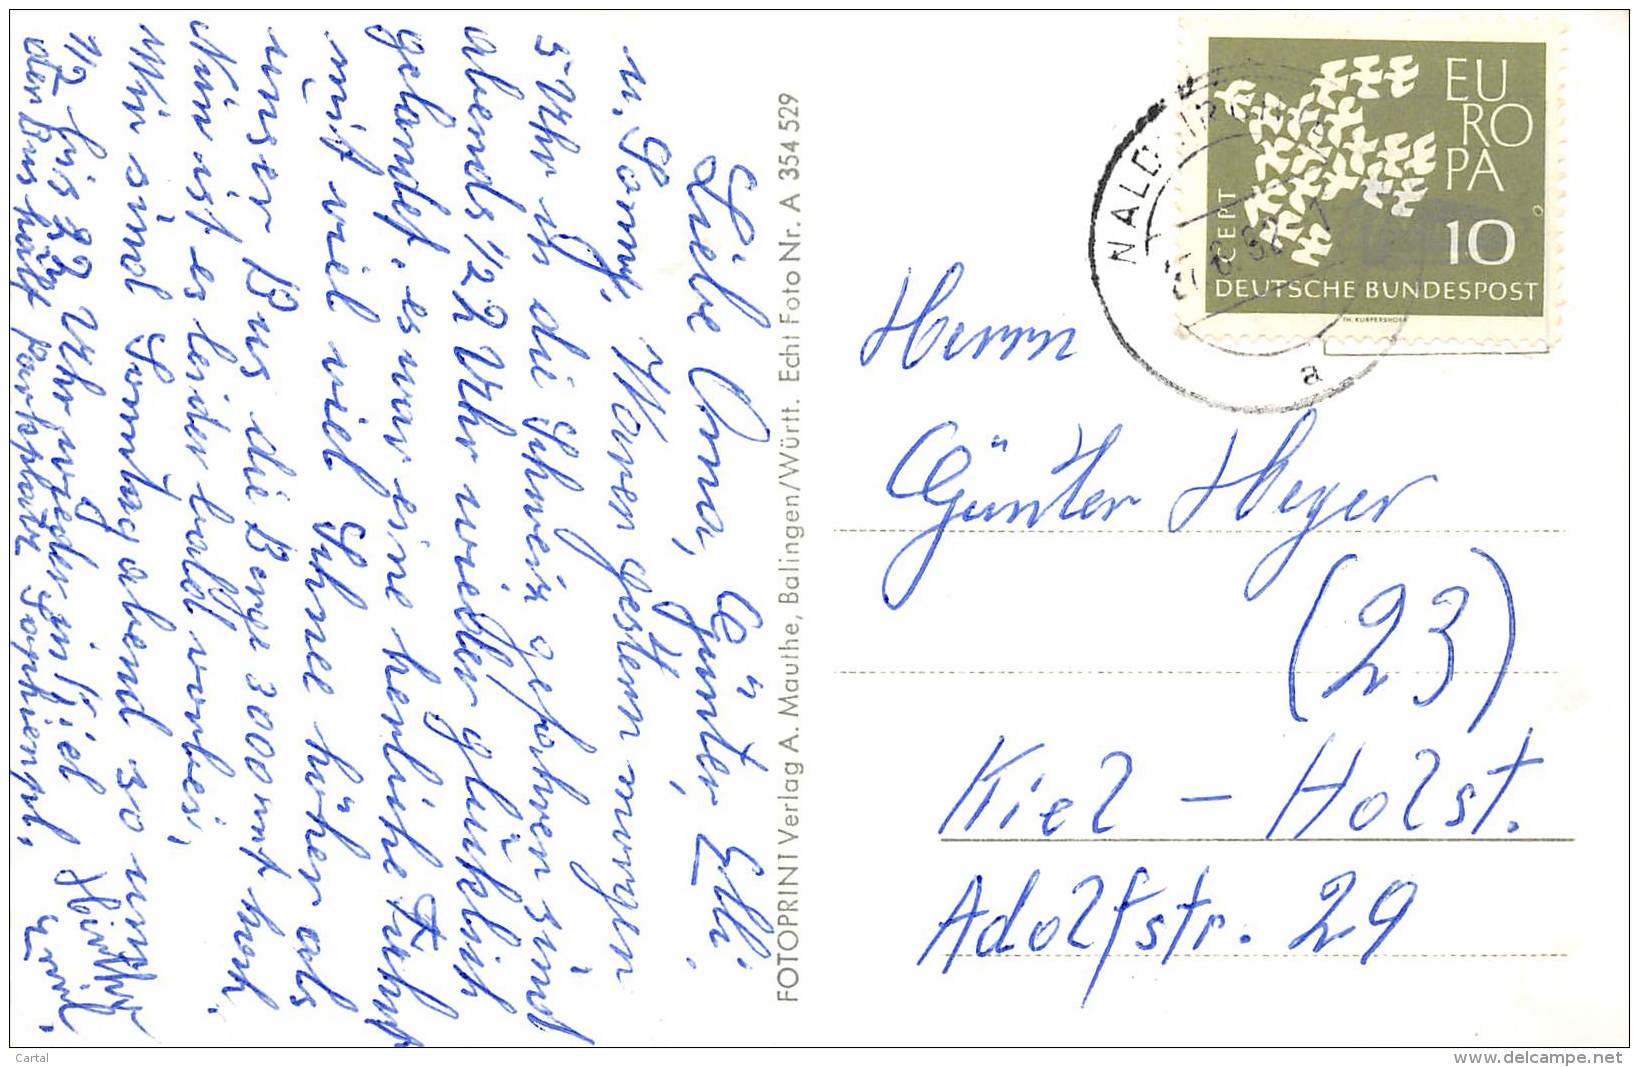 Liebe Oma, Günter Elli
u. Sonny,
Waren gestern morgen
5 Uhr in die Schweiz gefahren sind
abends 1/2 22 Uhr wieder glüklich
gelandet. es war eine herliche Fahrt
mit viel viel Schnee höher als
unser Bus die Berge 3000 mt hoch.
Nun ist es leider bald vorbei,
Wir sind Sontag abend so um
1/2 bis 22 Uhr wieder in Kiel
der Bus hält Parkplatz Sophienpl.
Emil.
FOTOPRINT Verlag A. Mauthe, Balingen/Württ. Echt Foto Nr. A 354 529
EU
RO
PA
CEPT
10
DEUTSCHE BUNDESPOST
TH. KURPERSHOEK
WALD
a
Herrn
Günter Heyer
(23)
Kiel - Holst.
Adolfstr. 29
Cartal
www.delcampe.net